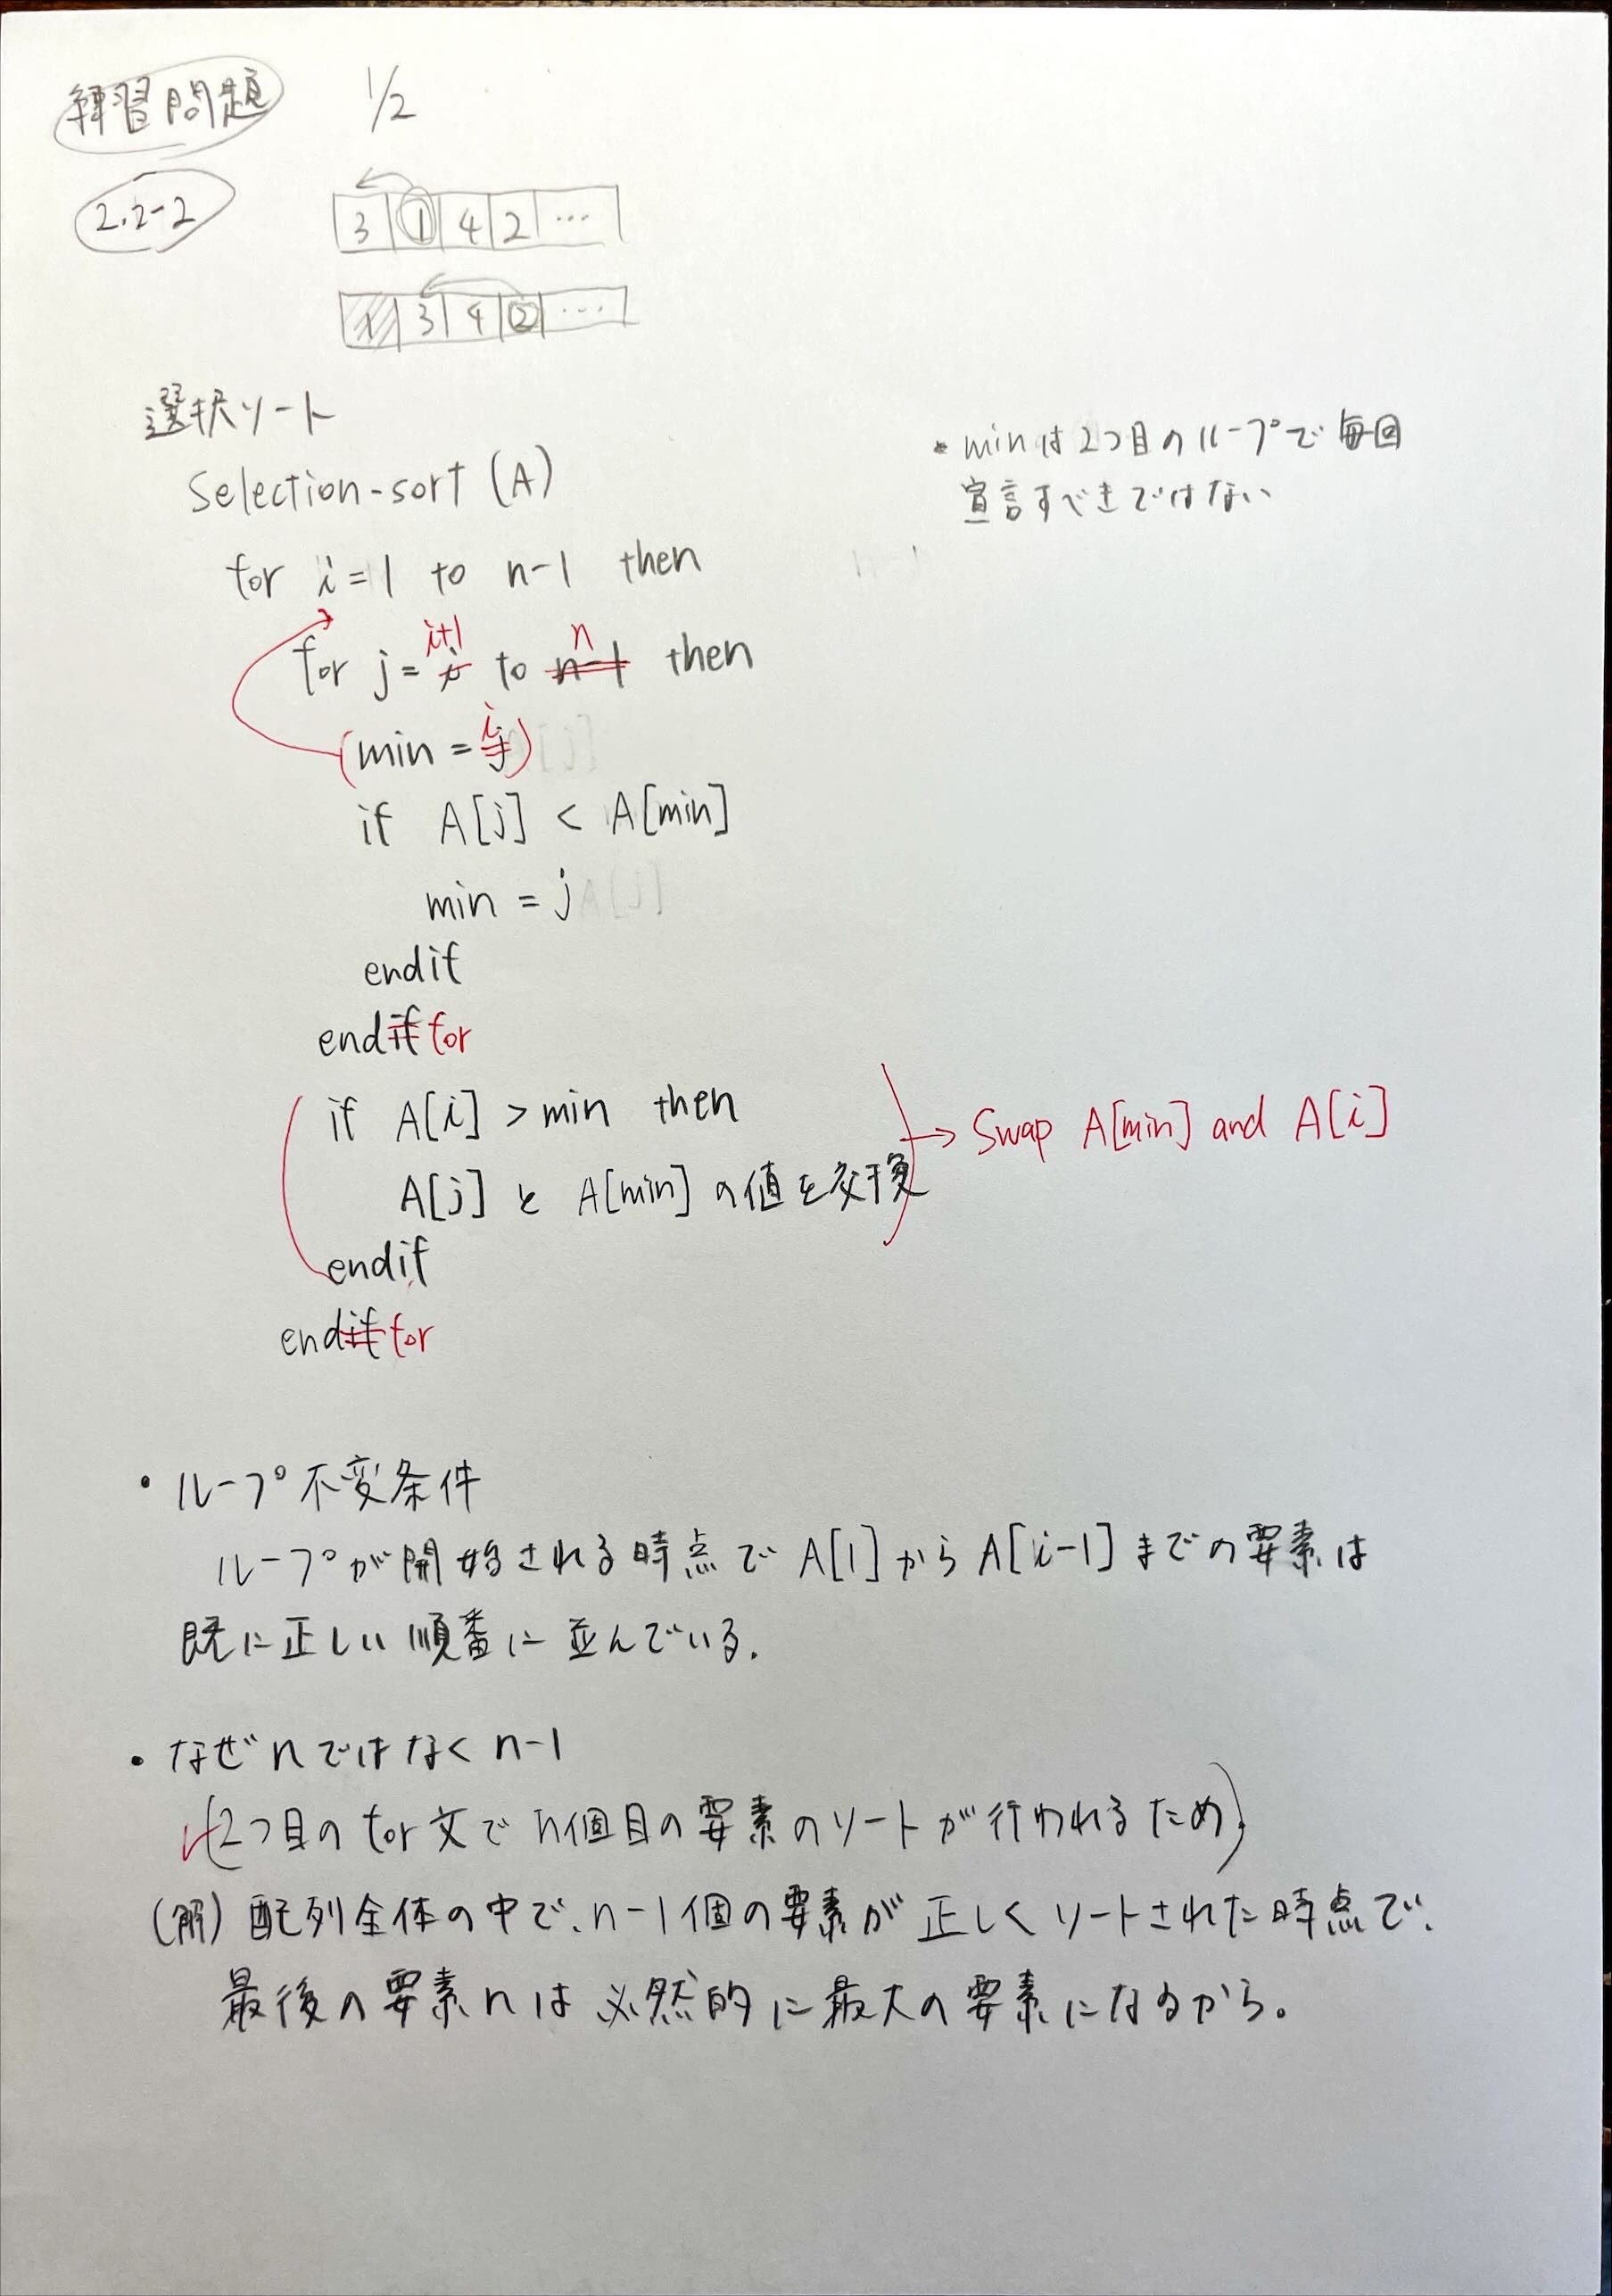 練習問題 1/2
2.2-2
3 1 4 2 ...
1 3 4 2 ...
選択ソート
Selection-sort (A)
・minは2つ目のループで毎回
宣言すべきではない
for i=1 to n-1 then
i+1 n
for j= i to n-1 then
i
(min = j)
if A[j] < A[min]
min = j
endif
endif for
if A[i] > min then
A[j] と A[min] の値を交換
→ Swap A[min] and A[i]
endif
endif for
・ループ不変条件
ループが開始される時点で A[1] から A[i-1] までの要素は
既に正しい順番に並んでいる.
・なぜ n ではなく n-1
(2つ目の for 文で n個目の要素のソートが行われるため)
(解) 配列全体の中で、n-1個の要素が正しくソートされた時点で、
最後の要素nは必然的に最大の要素になるから。